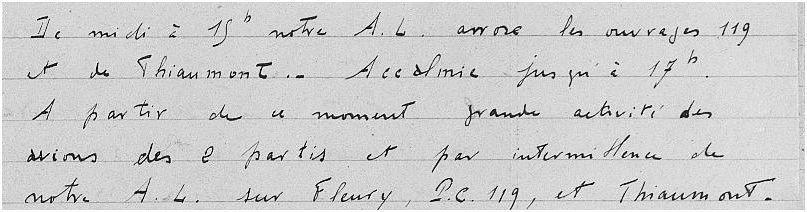 De midi à 15h notre A.L. arrose les ouvrages 119
et de Thiaumont.. Accalmie jusqu'à 17h.
A partir de ce moment grande activité des
avions des 2 partis et par intermittence de
notre A.L. sur Fleury, P.C. 119, et Thiaumont.